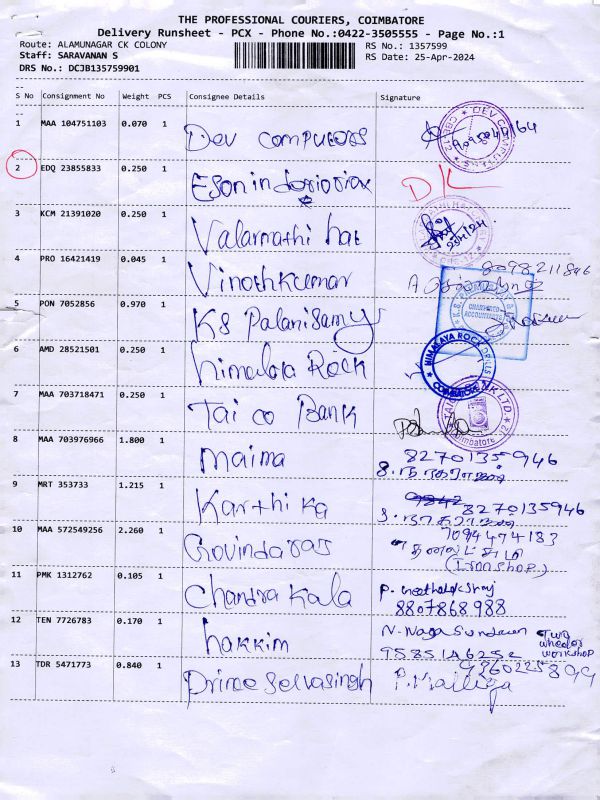 THE PROFESSIONAL COURIERS, COIMBATORE
Delivery Runsheet - PCX - Phone No.:0422-3505555 - Page No.:1
Route: ALAMUNAGAR CK COLONY
RS No.: 1357599
Staff: SARAVANAN S
RS Date: 25-Apr-2024
DRS No.: DCJB135759901
S No Consignment No Weight PCS Consignee Details Signature
1 MAA 104751103 0.070 1 Dev computors
2 EDQ 23855833 0.250 1 DK
3 KCM 21391020 0.250 1 Valarmathi 25/4/24
4 PRO 16421419 0.045 1 Vinothkumar 8098211846
5 PON 7052856 0.970 1 KS Palanisamy
CHARTERED ACCOUNTANTS
6 AMD 28521501 0.250 1 himalaya Rock
HIMALAYA ROCK DRILLS COIMBATORE
7 MAA 703718471 0.250 1 Tai co Bank
Coimbatore
8 MAA 703976966 1.800 1 maima 8270135946
9 MRT 353733 1.215 1 Karthika 9842 8270135946
10 MAA 572549256 2.260 1 Govindaraj 7094474183
(Ironshop)
11 PMK 1312762 0.105 1 Chandra kala P.
8807868988
12 TEN 7726783 0.170 1 hakkim N. Naga Sundaram Two wheeler workshop
13 TDR 5471773 0.840 1 Prince selvasingh 9360225899
P. Malliga